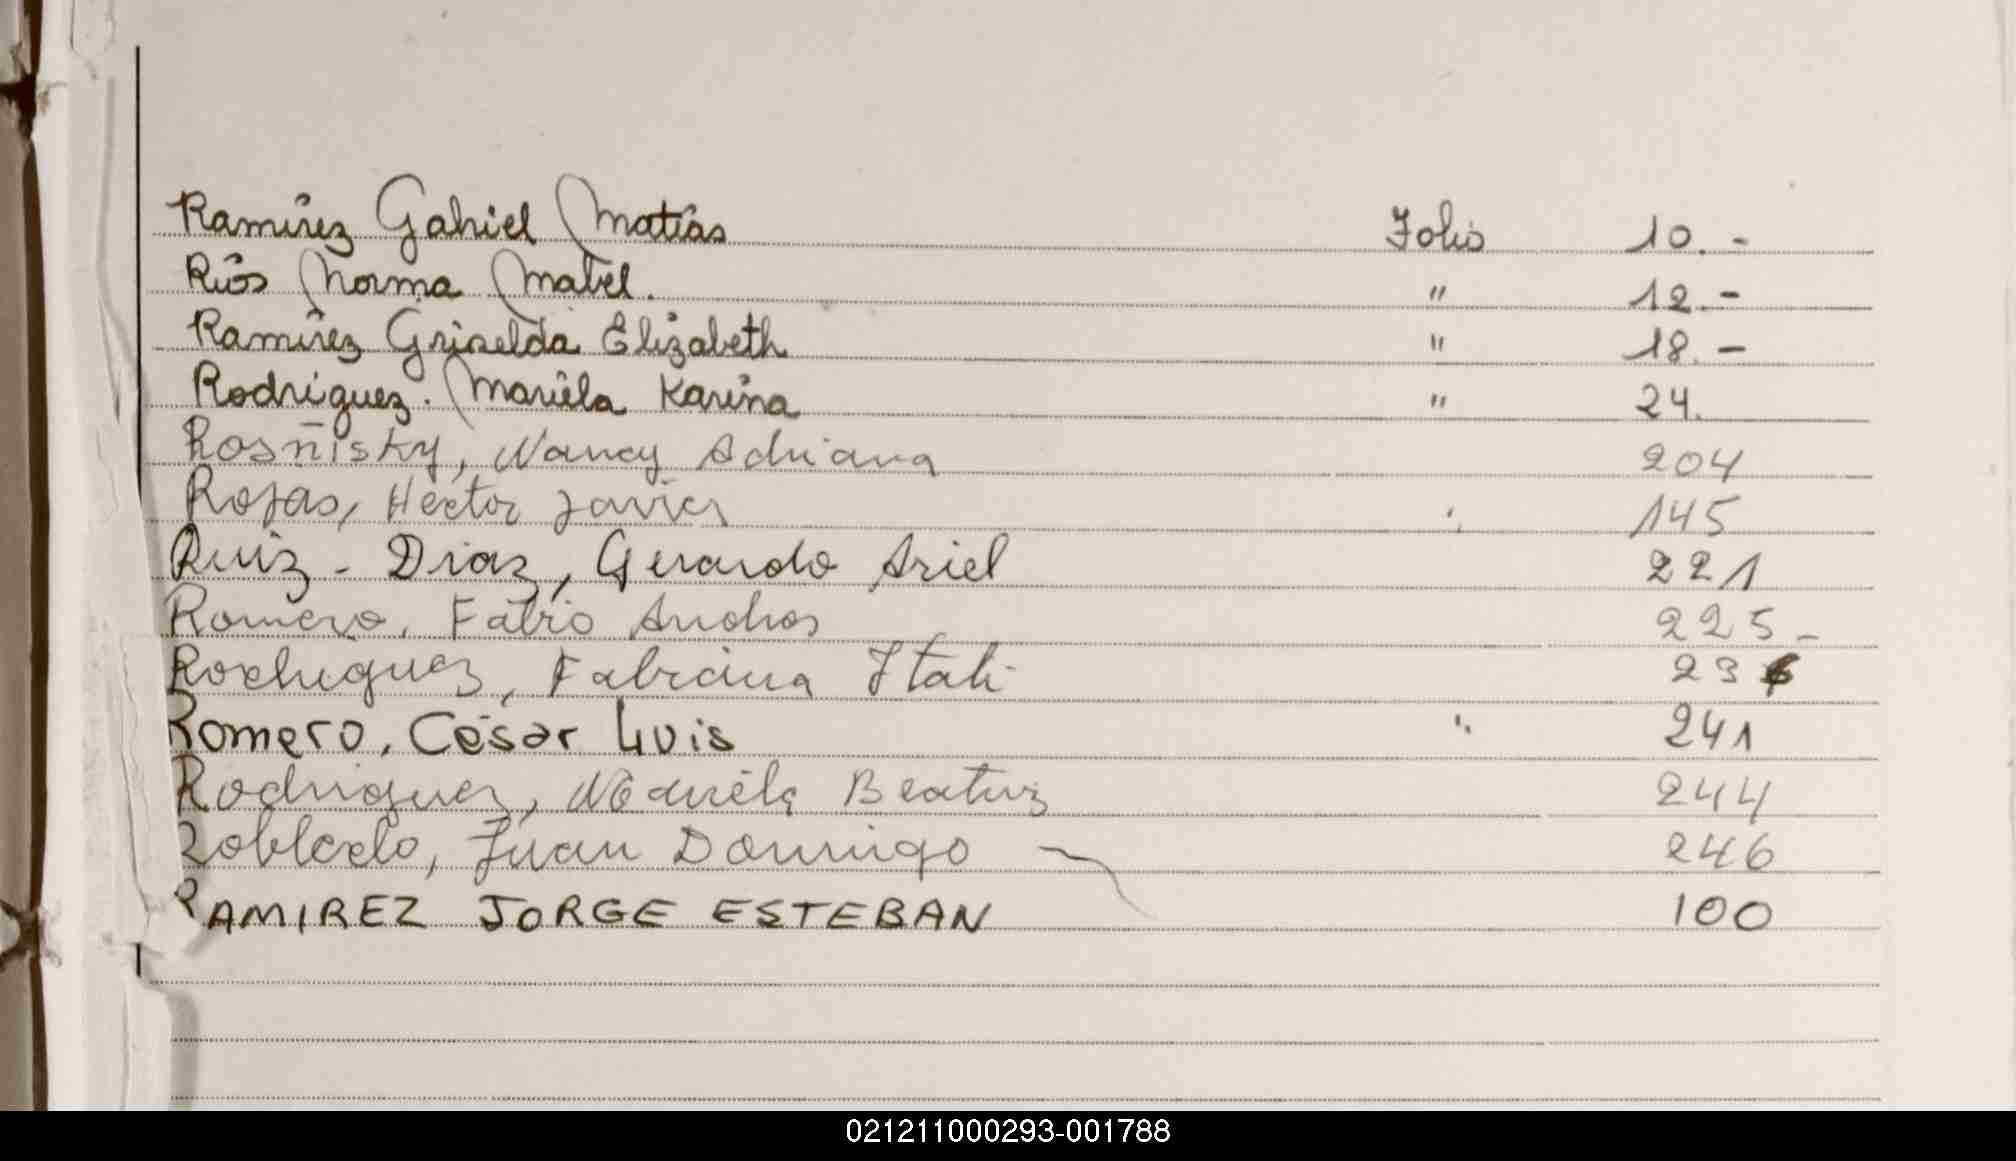 Ramírez Gabriel Matías Folio 10.-
Ríos Norma Mabel. " 12.-
Ramírez Griselda Elizabeth " 18.-
Rodríguez. Mariela Karina " 24.
Rosñisky, Nancy Adriana 204
Rojas, Hector Javier " 145
Ruiz - Diaz, Gerardo Ariel 221
Romero, Fabio Andres 225-
Rodriguez, Fabiana Itati 236
Romero, César Luis " 241
Rodriguez, Mariela Beatriz 244
Robledo, Juan Domingo 246
RAMIREZ JORGE ESTEBAN 100
021211000293-001788